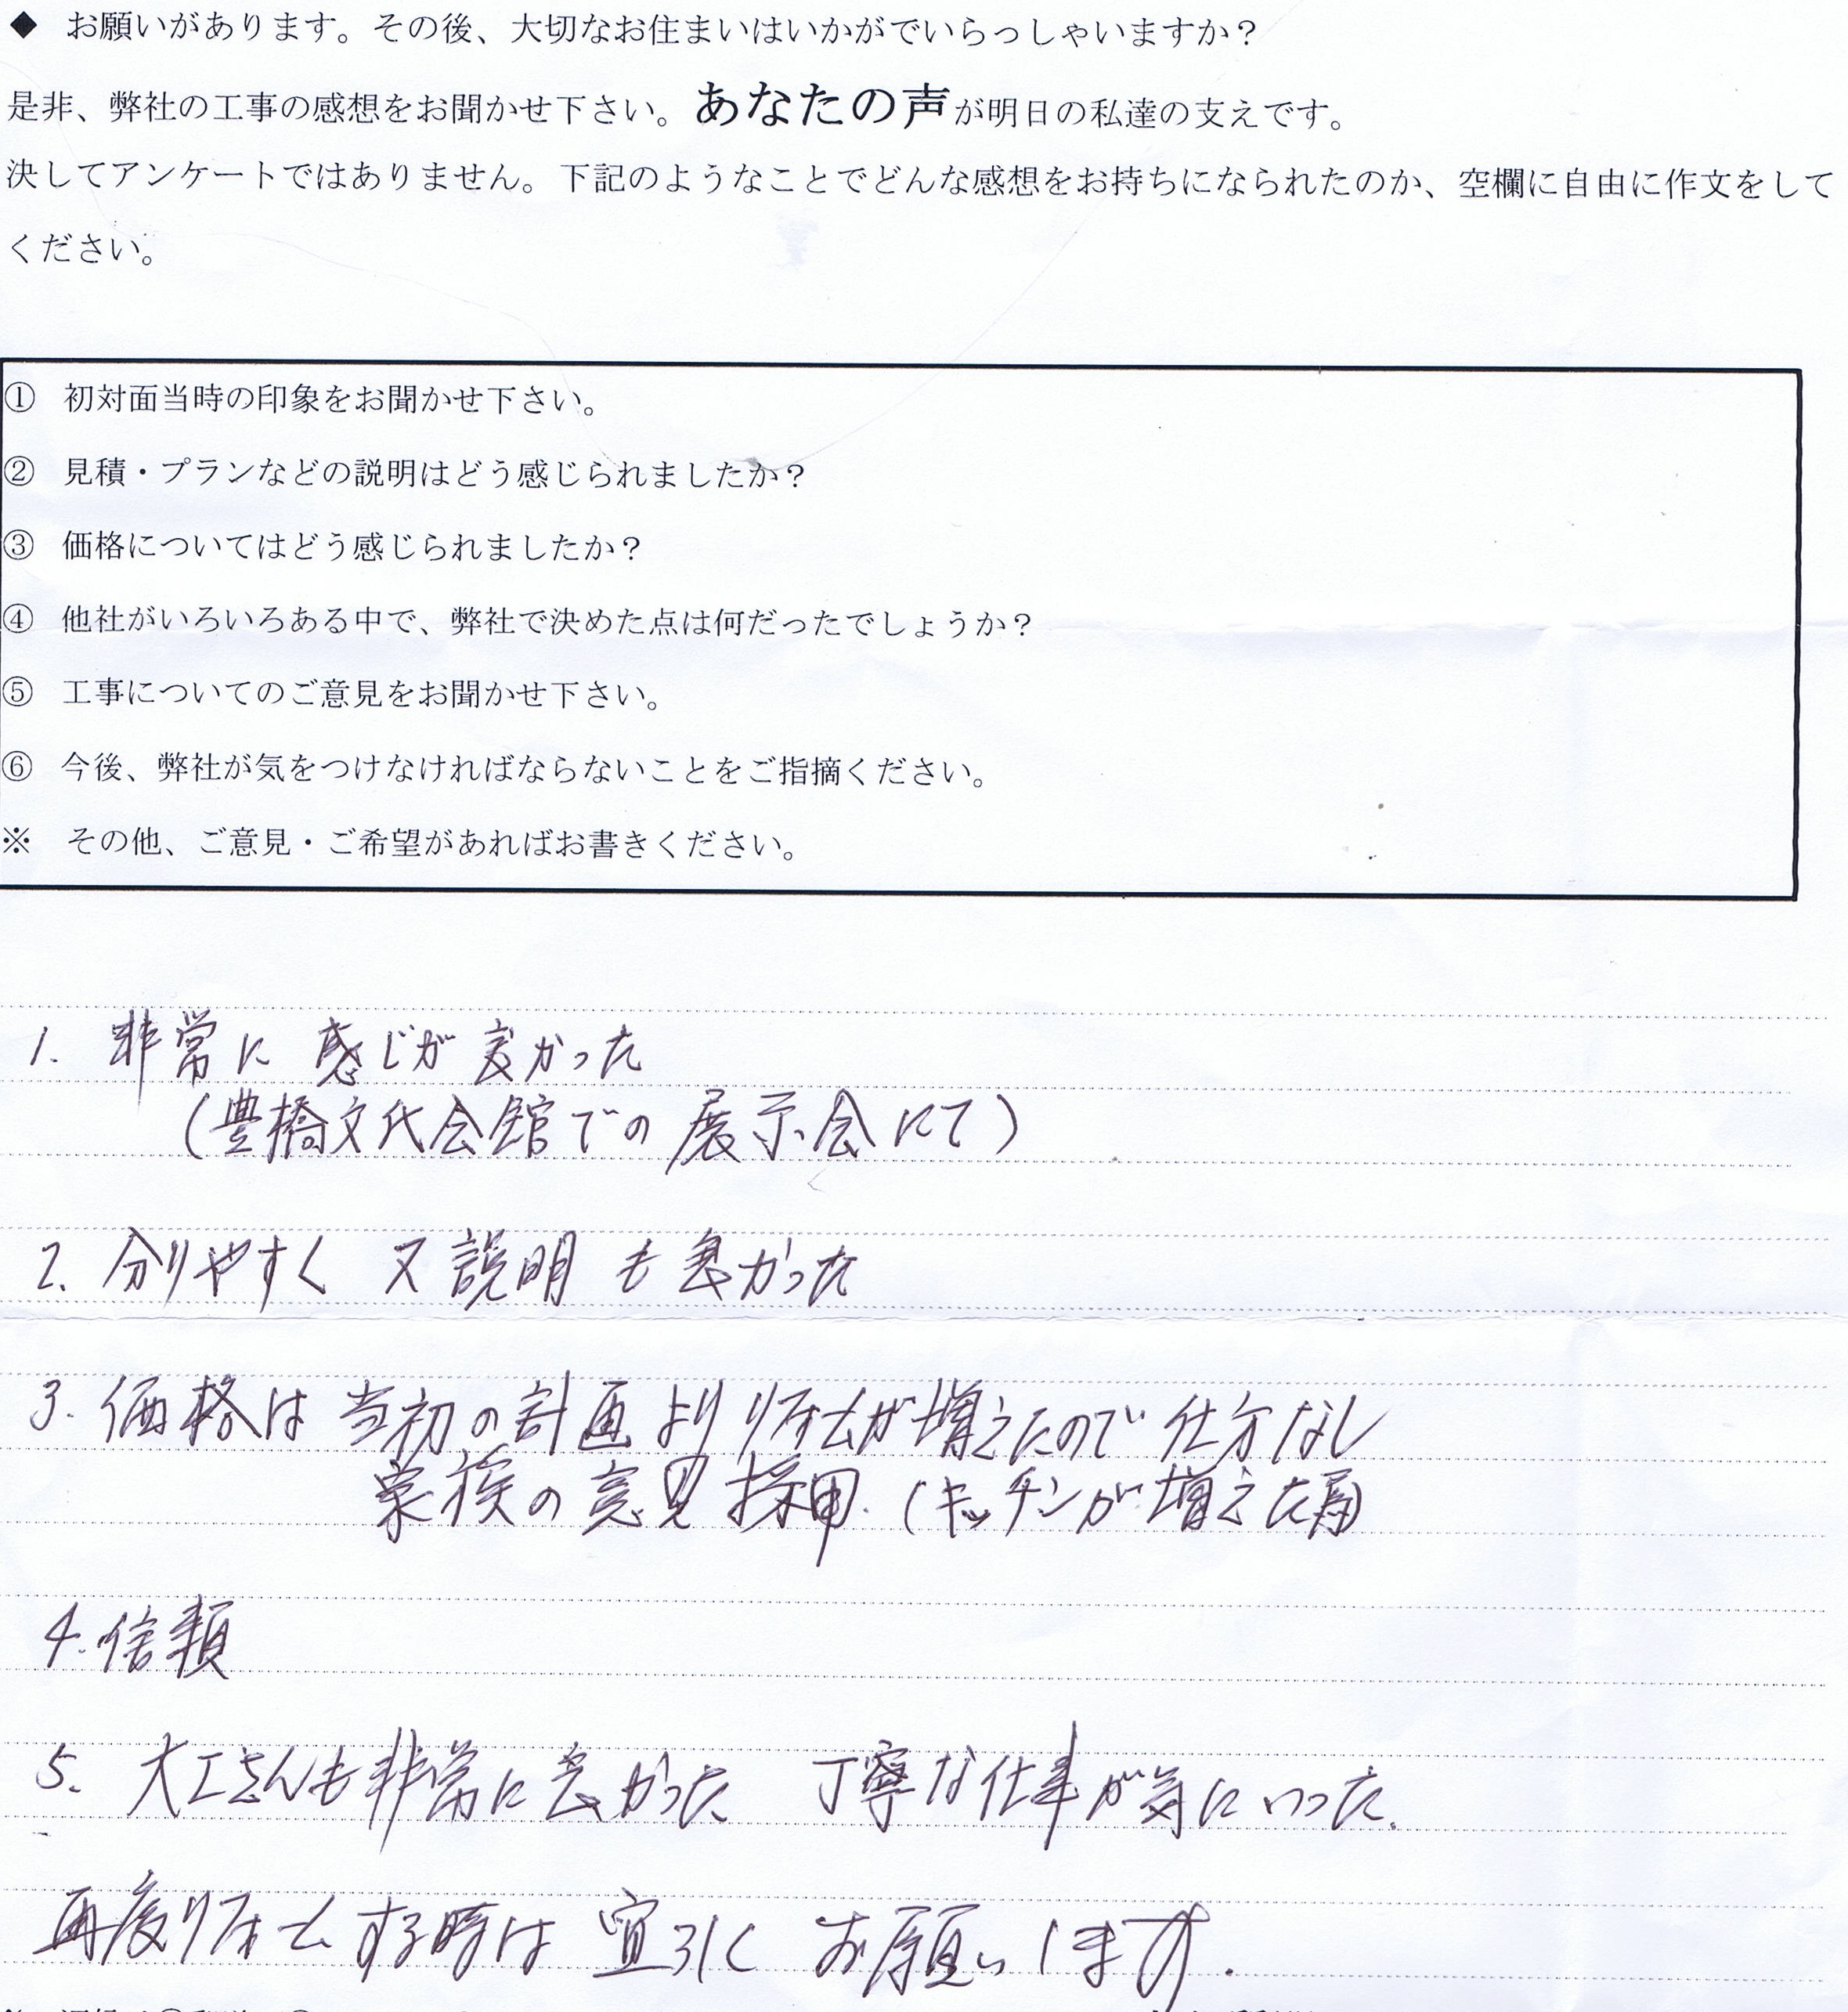 ◆ お願いがあります。その後、大切なお住まいはいかがでいらっしゃいますか？
是非、弊社の工事の感想をお聞かせ下さい。あなたの声が明日の私達の支えです。
決してアンケートではありません。下記のようなことでどんな感想をお持ちになられたのか、空欄に自由に作文をして
ください。
① 初対面当時の印象をお聞かせ下さい。
② 見積・プランなどの説明はどう感じられましたか？
③ 価格についてはどう感じられましたか？
④ 他社がいろいろある中で、弊社で決めた点は何だったでしょうか？
⑤ 工事についてのご意見をお聞かせ下さい。
⑥ 今後、弊社が気をつけなければならないことをご指摘ください。
※ その他、ご意見・ご希望があればお書きください。
1. 非常に 感じが良かった
(豊橋文代会館での展示会にて)
2. 分りやすく 又説明も良かった
3. 価格は当初の計画よりリフォームが増えたので仕方なし
家族の意見採用.(キッチンが増えた為)
4. 信頼
5. 大工さんも非常に良かった 丁寧な仕事が気にいった.
再度リフォームする時は 宜ろしく お願いします.